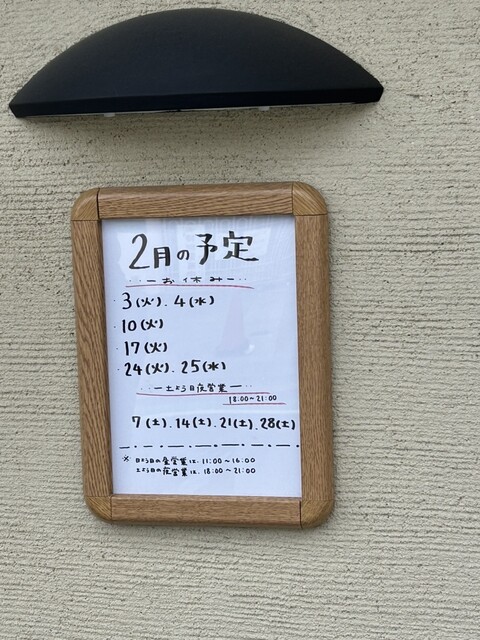 2月の予定
‥ーお休みー‥
・3(火)、4(水)
・10(火)
・17(火)
・24(火)、25(水)
‥ー土よう日夜営業ー‥
18:00〜21:00
7(土)、14(土)、21(土)、28(土)
※ 日よう日の昼営業は、11:00〜16:00
土よう日の夜営業は、18:00〜21:00